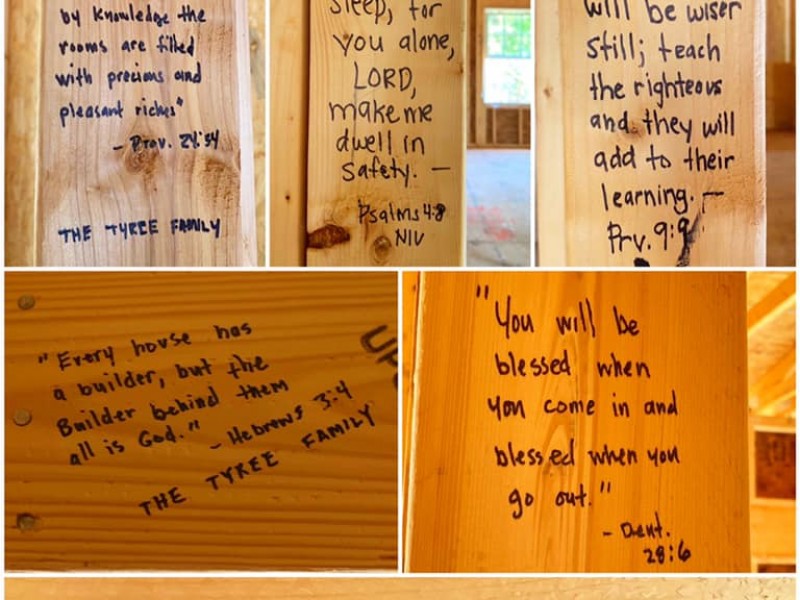 by knowledge the
rooms are filled
with precious and
pleasant riches"
- Prov. 24:
THE TYREE FAMILY
sleep, for
you alone,
LORD,
make me
dwell in
safety. —
Psalms 4:8
NIV
will be wiser
still; teach
the righteous
and they will
add to their
learning. —
Prv. 9:9
"Every house has
a builder, but the
Builder behind them
all is God."
- Hebrews 3:4
THE TYREE FAMILY
UP
"You will be
blessed when
you come in and
blessed when you
go out."
- Deut.
28:6